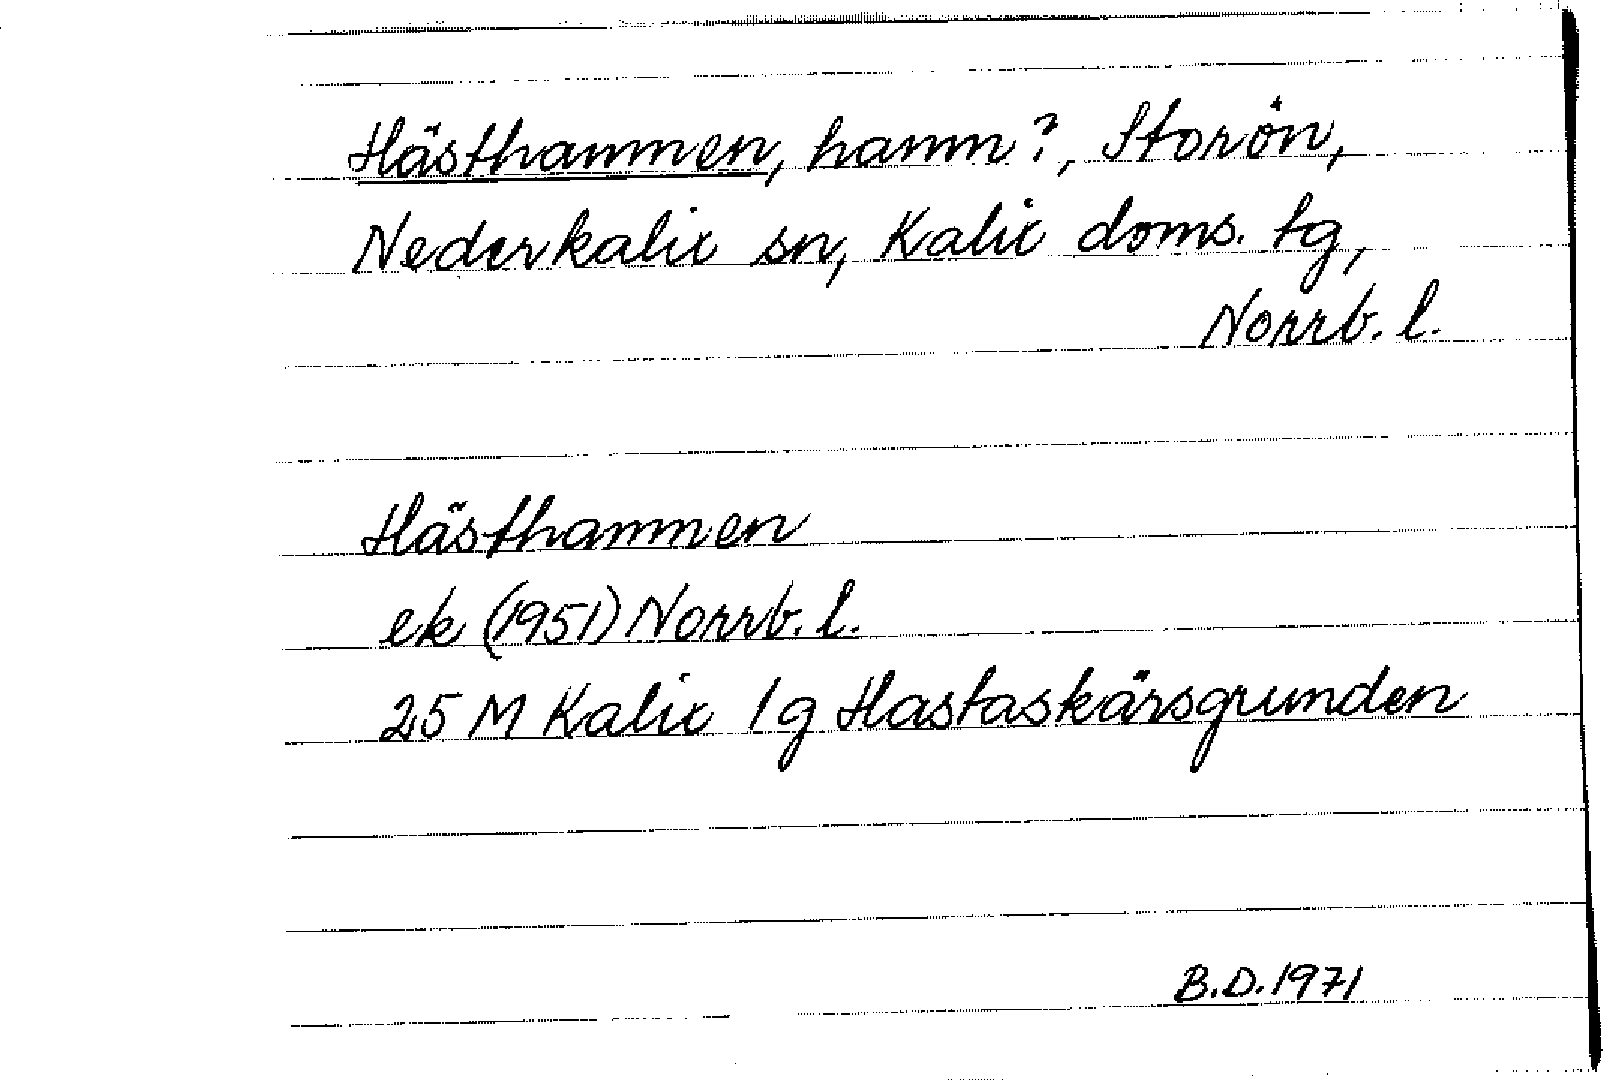 Hästhamnen, hamn?, Storön,
Nederkalix sn, Kalix doms. tg,
Norrb. l.
Hästhamnen
ek (1951) Norrb. l.
25 M Kalix 1g Hastaskärsgrunden
B.D. 1971